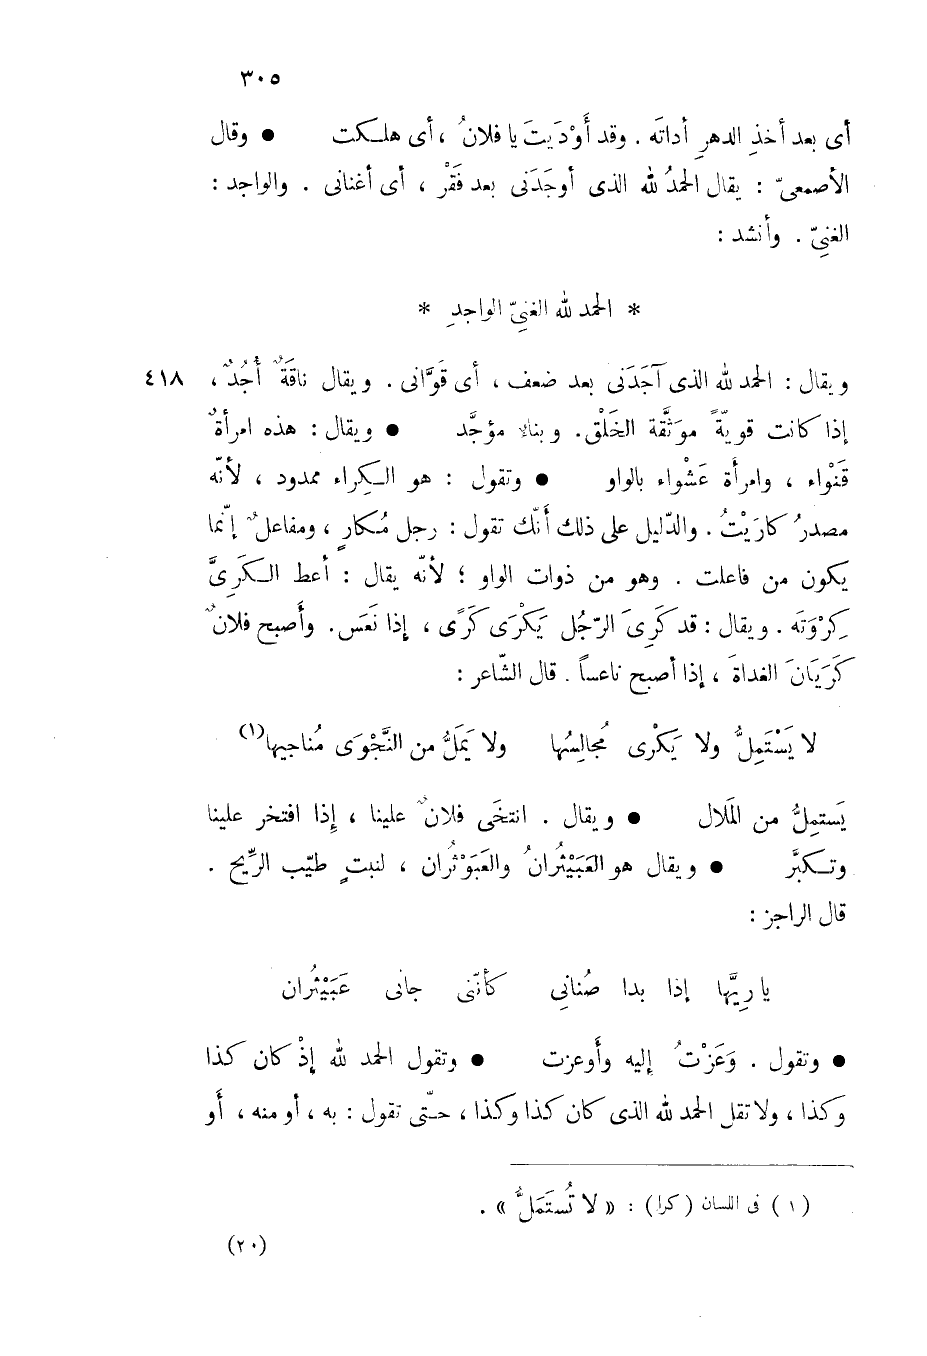 ٣٠٥
أى بعد أخذِ الدهرِ أداتَه . وقد أَوْدَيتَ يا فلانُ ، أى هلكت ● وقال
الأصمعىّ : يقال الحمدُ لله الذى أوجَدَنى بعد فَقْر ، أى أغنانى . والواجد :
الغنِىّ . وأنشد :
* الحمد لله الغنِىّ الواجدِ *
ويقال : الحمد لله الذى آجَدَنى بعد ضعف ، أى قَوَّانى . ويقال ناقَةٌ أُجُدٌ ، ٤١٨
إذا كانت قويّةً موَثَّقة الخَلْق . وبناء مؤجَّد ● ويقال : هذه امرأةٌ
قَنْواء ، وامرأة عَشْواء بالواو ● وتقول : هو الكِراء ممدود ، لأنّه
مصدرُ كارَيْتُ . والدّليل على ذلك أَنّك تقول : رجل مُكارٍ ، ومفاعلٌ إنّما
يكون من فاعلت . وهو من ذوات الواو ؛ لأنّه يقال : أعط الكَرِىَّ
كِرْوَتَه . ويقال : قد كَرِىَ الرّجُل يَكْرَى كَرًى ، إذا نَعَس . وأصبح فلانٌ
كَرَيَانَ الغداةَ ، إذا أصبح ناعساً . قال الشّاعر :
لا يَسْتَمِلُّ ولا يَكْرى مُجالِسُها ولا يَمَلُّ من النَّجْوَى مُناجيها(١)
يَستمِلُّ من المَلال ● ويقال . انتخَى فلانٌ علينا ، إذا افتخر علينا
وتكبَّر ● ويقال هو العَبَيْثُرانُ والعَبَوْثُران ، لنبتٍ طيّب الرِّيح .
قال الراجز :
يا ريَّها إذا بدا صُنانِى كأنّنى جانى عَبَيْثُران
● وتقول . وَعَزْتُ إليه وأَوعزت ● وتقول الحمد لله إذْ كان كذا
وكذا ، ولا تقل الحمد لله الذى كان كذا وكذا ، حتّى تقول : به ، أو منه ، أَو
(١) فى اللسان (كرا) : « لا تُستَمَلُّ » .
(٢٠)